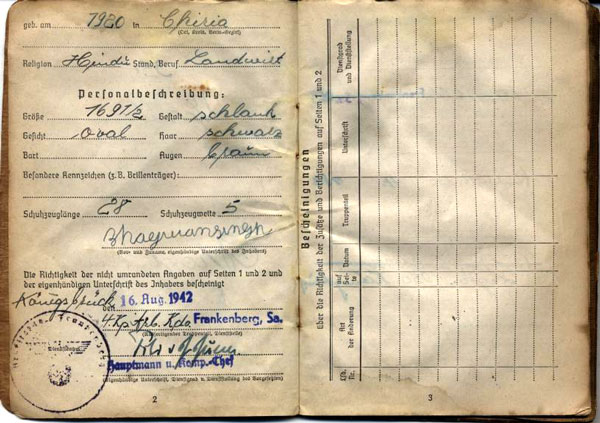 geb. am 1920 in Chiria
(Ort, Kreis, Verw.-Bezirk)
Religion Hindu Stand, Beruf Landwirt
Personalbeschreibung:
Größe 169 1/2 Gestalt schlank
Gesicht oval Haar schwarz
Bart Augen braun
Besondere Kennzeichen (z.B. Brillenträger):
Schuhzeuglänge 28 Schuhzeugweite 5
Bhagwansingh
(Vor- und Zuname, eigenhändige Unterschrift des Inhabers)
Die Richtigkeit der nicht umrandeten Angaben auf Seiten 1 und 2 und
der eigenhändigen Unterschrift des Inhabers bescheinigt
Königsbrück den 16. Aug. 1942
4. Kp. Frankenberg, Sa.
Dienstsiegel
Hauptmann u. Komp.-Chef
(Eigenhändige Unterschrift, Dienstgrad u. Dienststellung des Vorgesetzten)
2
Bescheinigungen
über die Richtigkeit der Zusätze und Berichtigungen auf Seiten 1 und 2
Lfd. Nr.
Art der Änderung
auf Seite
Datum
Truppenteil
Unterschrift
Dienstgrad und Dienststellung
3